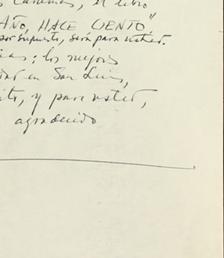 el libro
AÑO, HACE CIENTO"
por supuesto, será para usted.
los mejores
en San Luis,
y para usted,
agradecido